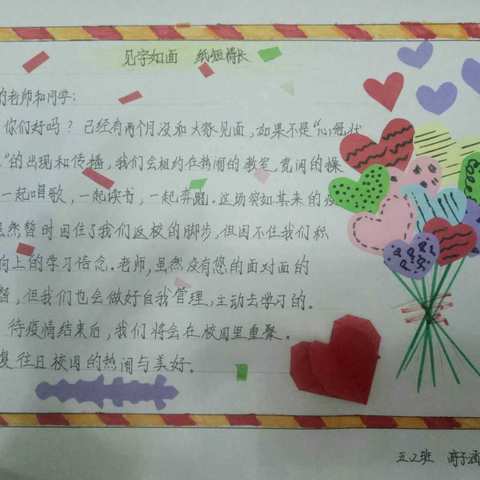 见字如面 纸短情长
的老师和同学:
你们好吗?已经有两个月没和大家见面,如果不是“心冠状
”的出现和传播,我们会相约在热闹的教室,宽阔的操
一起唱歌,一起读书,一起奔跑。这场突如其来的
虽然暂时困住了我们返校的脚步,但困不住我们积
向上的学习信念。老师,虽然没有您的面对面的
督,但我们也会做好自我管理,主动去学习的。
待疫情结束后,我们将会在校园里重聚。
复往日校园的热闹与美好。
五2班